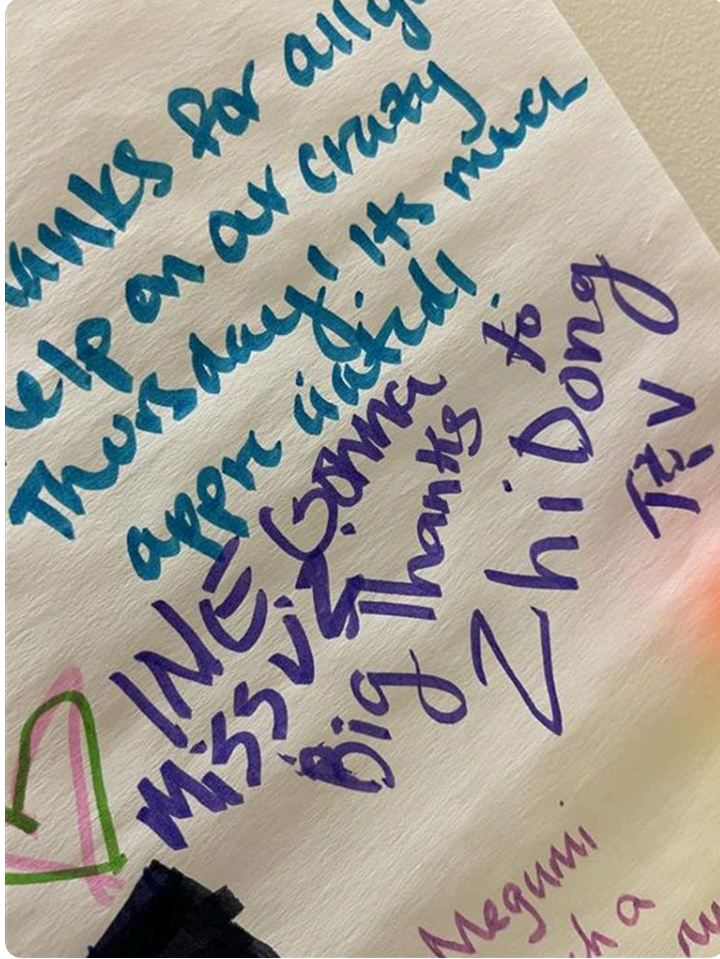 anks for all y
elp on our crazy
Thursday! Its much
appreciated!
INE Gonna
Miss
Big Thanks to
Zhi Dong
Megumi